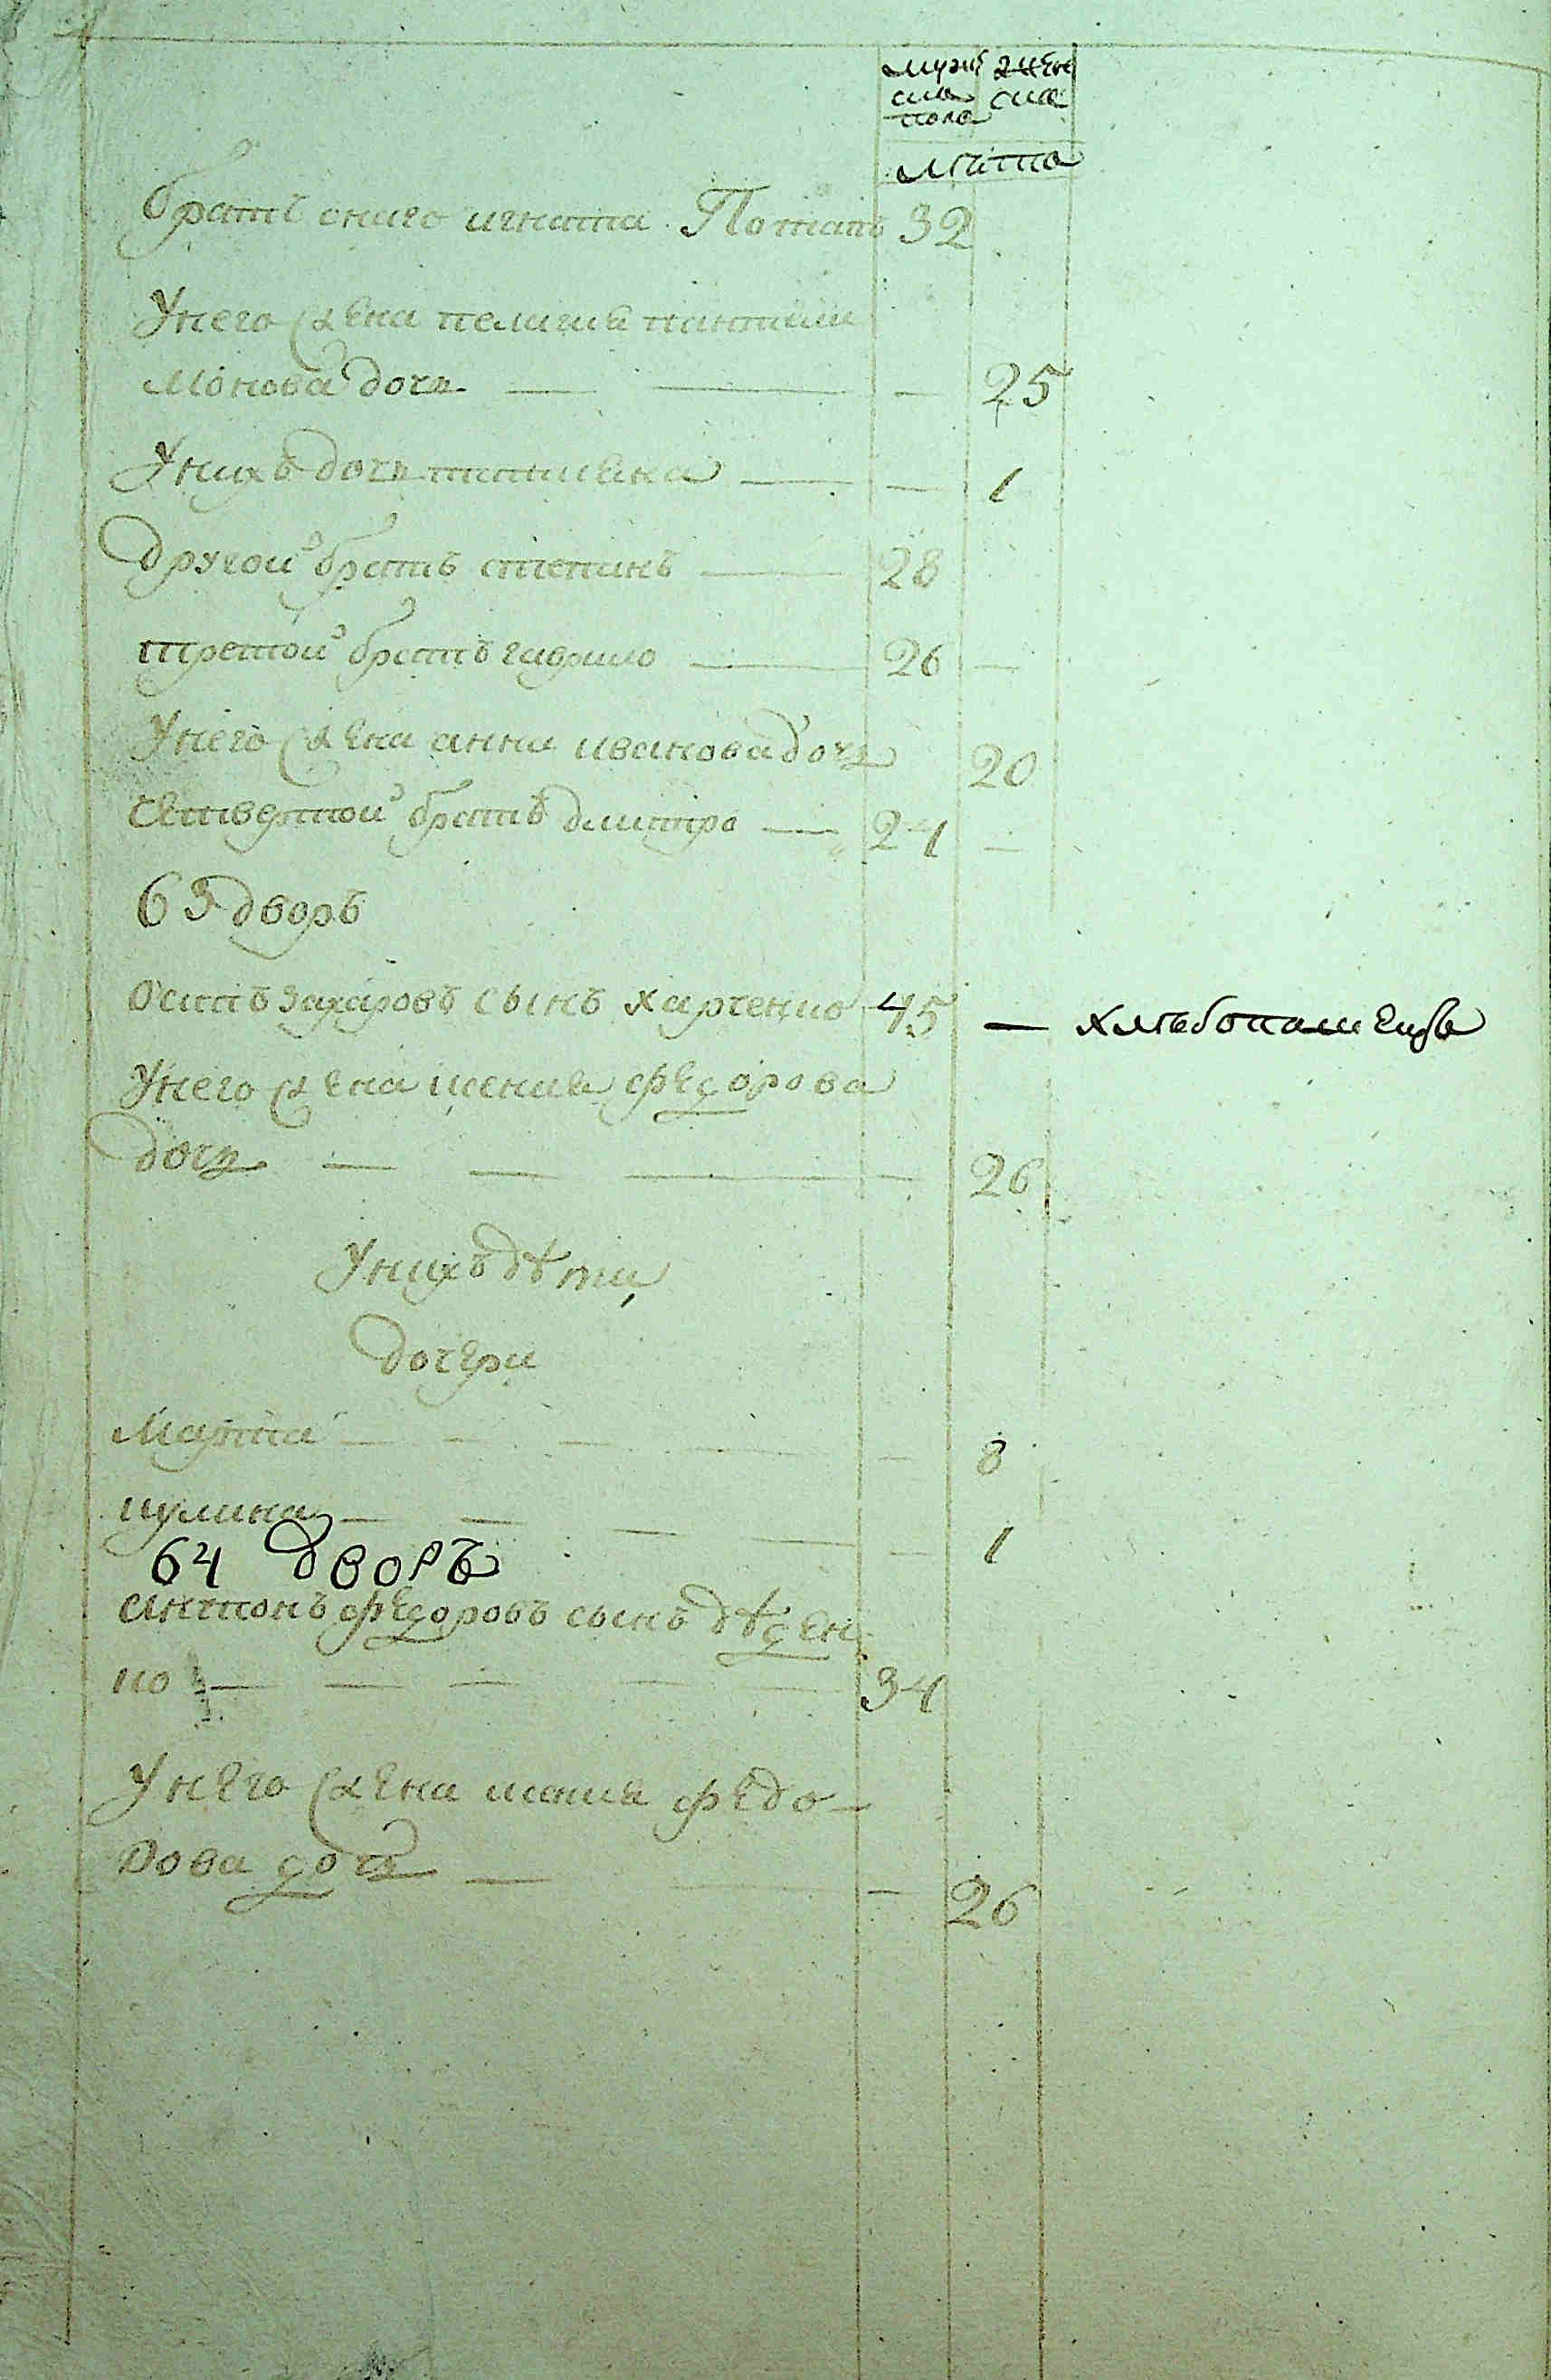 мужеска пола женска
лѣта
братъ онаго игната Потапъ 32
У него жена пелагия пантили
монова дочь — — — 25
У нихъ дочь татияна — — 1
другои братъ степанъ — 28
третои братъ гаврило — 26 —
У него жена анна иванова дочь 20
четвертои братъ дмитро — 24 —
63 дворъ
осипъ захаровъ сынъ харченко 45 — хлѣбопашецъ
У него жена ксения федорова
дочь — — — — 26
У нихъ дѣти
дочери
Марθа — — — — — 8
иулина — — — — — 1
64 дворъ
антонъ федоровъ сынъ дѣден
ко — — — — — 34
У него жена федо
рова дочь — — 26